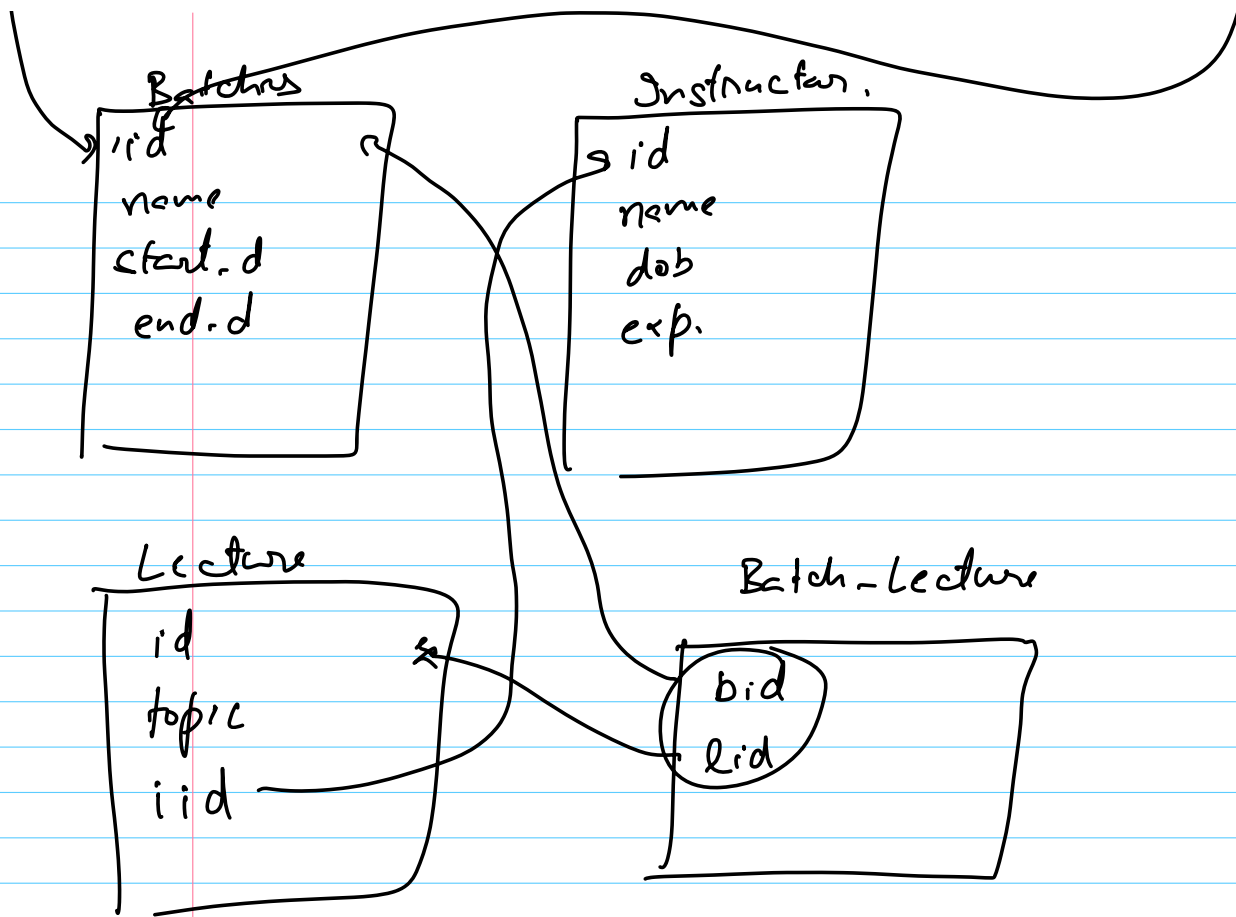 Batches
id
name
start_d
end_d
Instructor.
id
name
dob
exp.
Lecture
id
topic
iid
Batch_Lecture
bid
lid